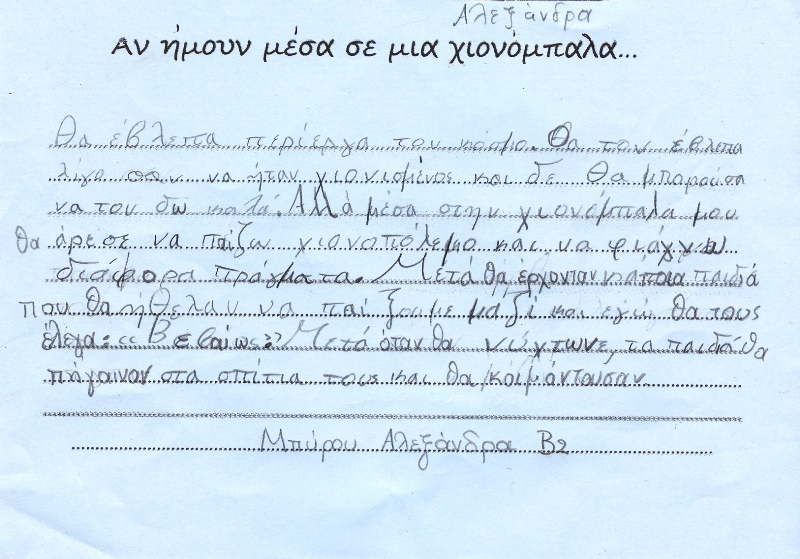 Αλεξάνδρα
Αν ήμουν μέσα σε μια χιονόμπαλα...
Θα έβλεπα περίεργα τον κόσμο. Θα τον έβλεπα
λίγο σαν να ήταν χιονισμένος και δε θα μπορούσα
να τον δω καλά. Αλλά μέσα στην χιονόμπαλα μου
θα άρεσε να παίζω χιονοπόλεμο και να φτιάχνω
διάφορα πράγματα. Μετά θα έρχονταν κάποια παιδιά
που θα ήθελαν να παίζουμε μαζί και εγώ θα τους
έλεγα: «Βεβαίως» Μετά όταν θα νύχτωνε, τα παιδιά θα
πήγαιναν στα σπίτια τους και θα κοιμόντουσαν
Μπύρου Αλεξάνδρα Β2